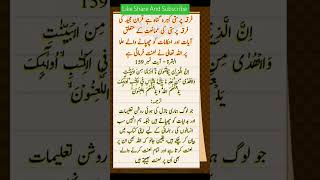 Like Share And Subscribe
فرقہ پرستی کبیرہ گناہ ہے قرآن مجید کی
فرقہ پرستی کی ممانعت کے متعلق
آیات اور احکامات کو چھپانے والے علما
پر اللہ تعالی نے لعنت فرمائی ہے
البقرۃ - آیت نمبر 159
إِنَّ الَّذِينَ يَكْتُمُونَ مَا أَنْزَلْنَا مِنَ الْبَيِّنَاتِ
فِي الْكِتَابِ أُولَئِكَ
يَلْعَنُهُمُ اللَّهُ وَيَلْعَنُهُمُ اللَّاعِنُونَ
ترجمہ:
جو لوگ ہماری نازل کی ہوئی روشن تعلیمات
اور ہدایات کو چھپاتے ہیں جبکہ ہم انہیں سب
انسانوں کی رہنمائی کے لیے اپنی کتاب میں
بیان کر چکے ہیں، یقین جانو کہ اللہ بھی ان پر
لعنت کرتا ہے اور تمام لعنت کرنے والے
بھی ان پر لعنت بھیجتے ہیں